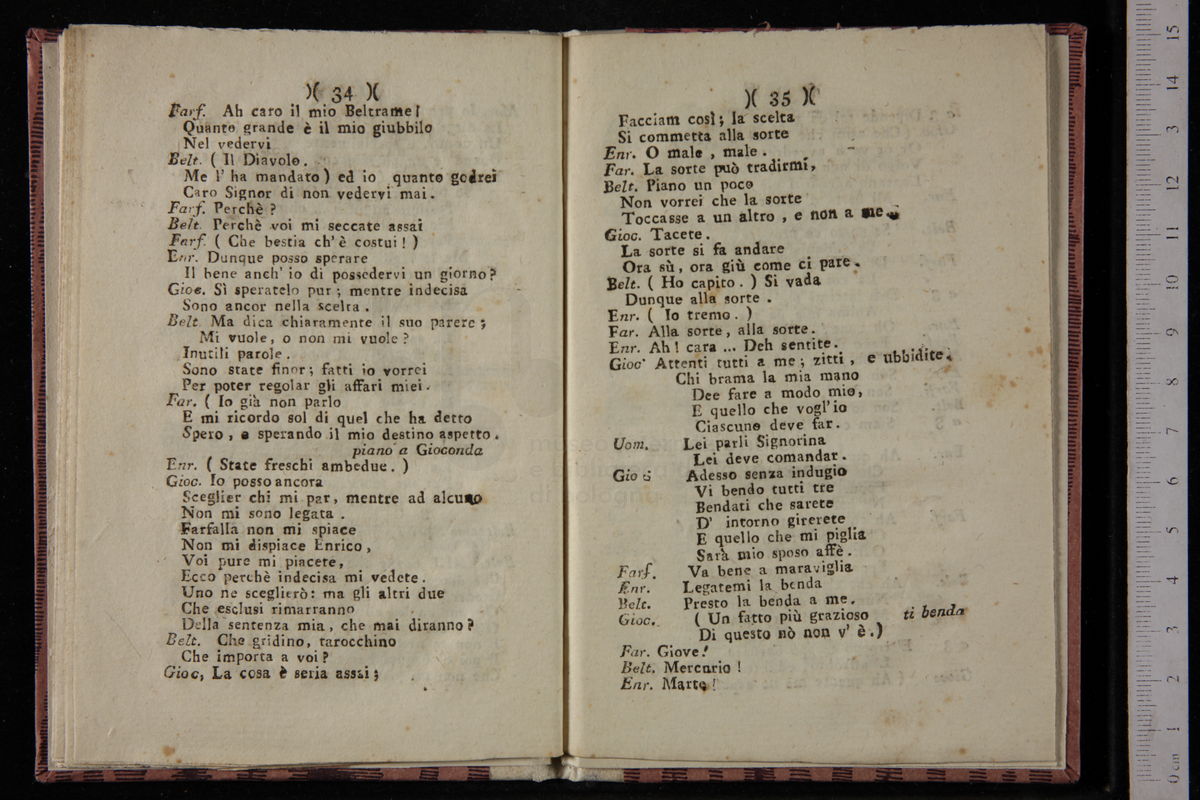 )( 34 )(
Farf. Ah caro il mio Beltrame!
Quanto grande è il mio giubbilo
Nel vedervi
Belt. ( Il Diavolo.
Me l' ha mandato ) ed io quanto godrei
Caro Signor di non vedervi mai.
Farf. Perchè ?
Belt. Perchè voi mi seccate assai
Farf. ( Che bestia ch' è costui ! )
Enr. Dunque posso sperare
Il bene anch' io di possedervi un giorno?
Gioc. Sì speratelo pur ; mentre indecisa
Sono ancor nella scelta .
Belt. Ma dica chiaramente il suo parere ;
Mi vuole, o non mi vuole ?
Inutili parole .
Sono state finor ; fatti io vorrei
Per poter regolar gli affari miei.
Far. ( Io già non parlo
E mi ricordo sol di quel che ha detto
Spero , e sperando il mio destino aspetto.
piano a Gioconda
Enr. ( State freschi ambedue. )
Gioc. Io posso ancora
Sceglier chi mi par, mentre ad alcuno
Non mi sono legata .
Farfalla non mi spiace
Non mi dispiace Enrico ,
Voi pure mi piacete,
Ecco perchè indecisa mi vedete.
Uno ne sceglierò: ma gli altri due
Che esclusi rimarranno
Della sentenza mia , che mai diranno?
Belt. Che gridino, tarocchino
Che importa a voi ?
Gioc, La cosa è seria assai ;
)( 35 )(
Facciam così ; la scelta
Si commetta alla sorte
Enr. O male , male .
Far. La sorte può tradirmi,
Belt. Piano un poco
Non vorrei che la sorte
Toccasse a un altro , e non a me.
Gioc. Tacete.
La sorte si fa andare
Ora sù, ora giù come ci pare.
Belt. ( Ho capito . ) Si vada
Dunque alla sorte .
Enr. ( Io tremo. )
Far. Alla sorte, alla sorte.
Enr. Ah! cara ... Deh sentite.
Gioc' Attenti tutti a me ; zitti , e ubbidite.
Chi brama la mia mano
Dee fare a modo mio,
E quello che vogl' io
Ciascuno deve far.
Uom. Lei parli Signorina
Lei deve comandar.
Gio Adesso senza indugio
Vi bendo tutti tre
Bendati che sarete
D' intorno girerete
E quello che mi piglia
Sarà mio sposo affè.
Farf. Va bene a maraviglia
Enr. Legatemi la benda
Belt. Presto la benda a me.
Gioc. ( Un fatto più grazioso ti benda
Di questo nò non v' è.)
Far. Giove!
Belt. Mercurio !
Enr. Marte !
museo
di bologna
0 cm 1 2 3 4 5 6 7 8 9 10 11 12 13 14 15